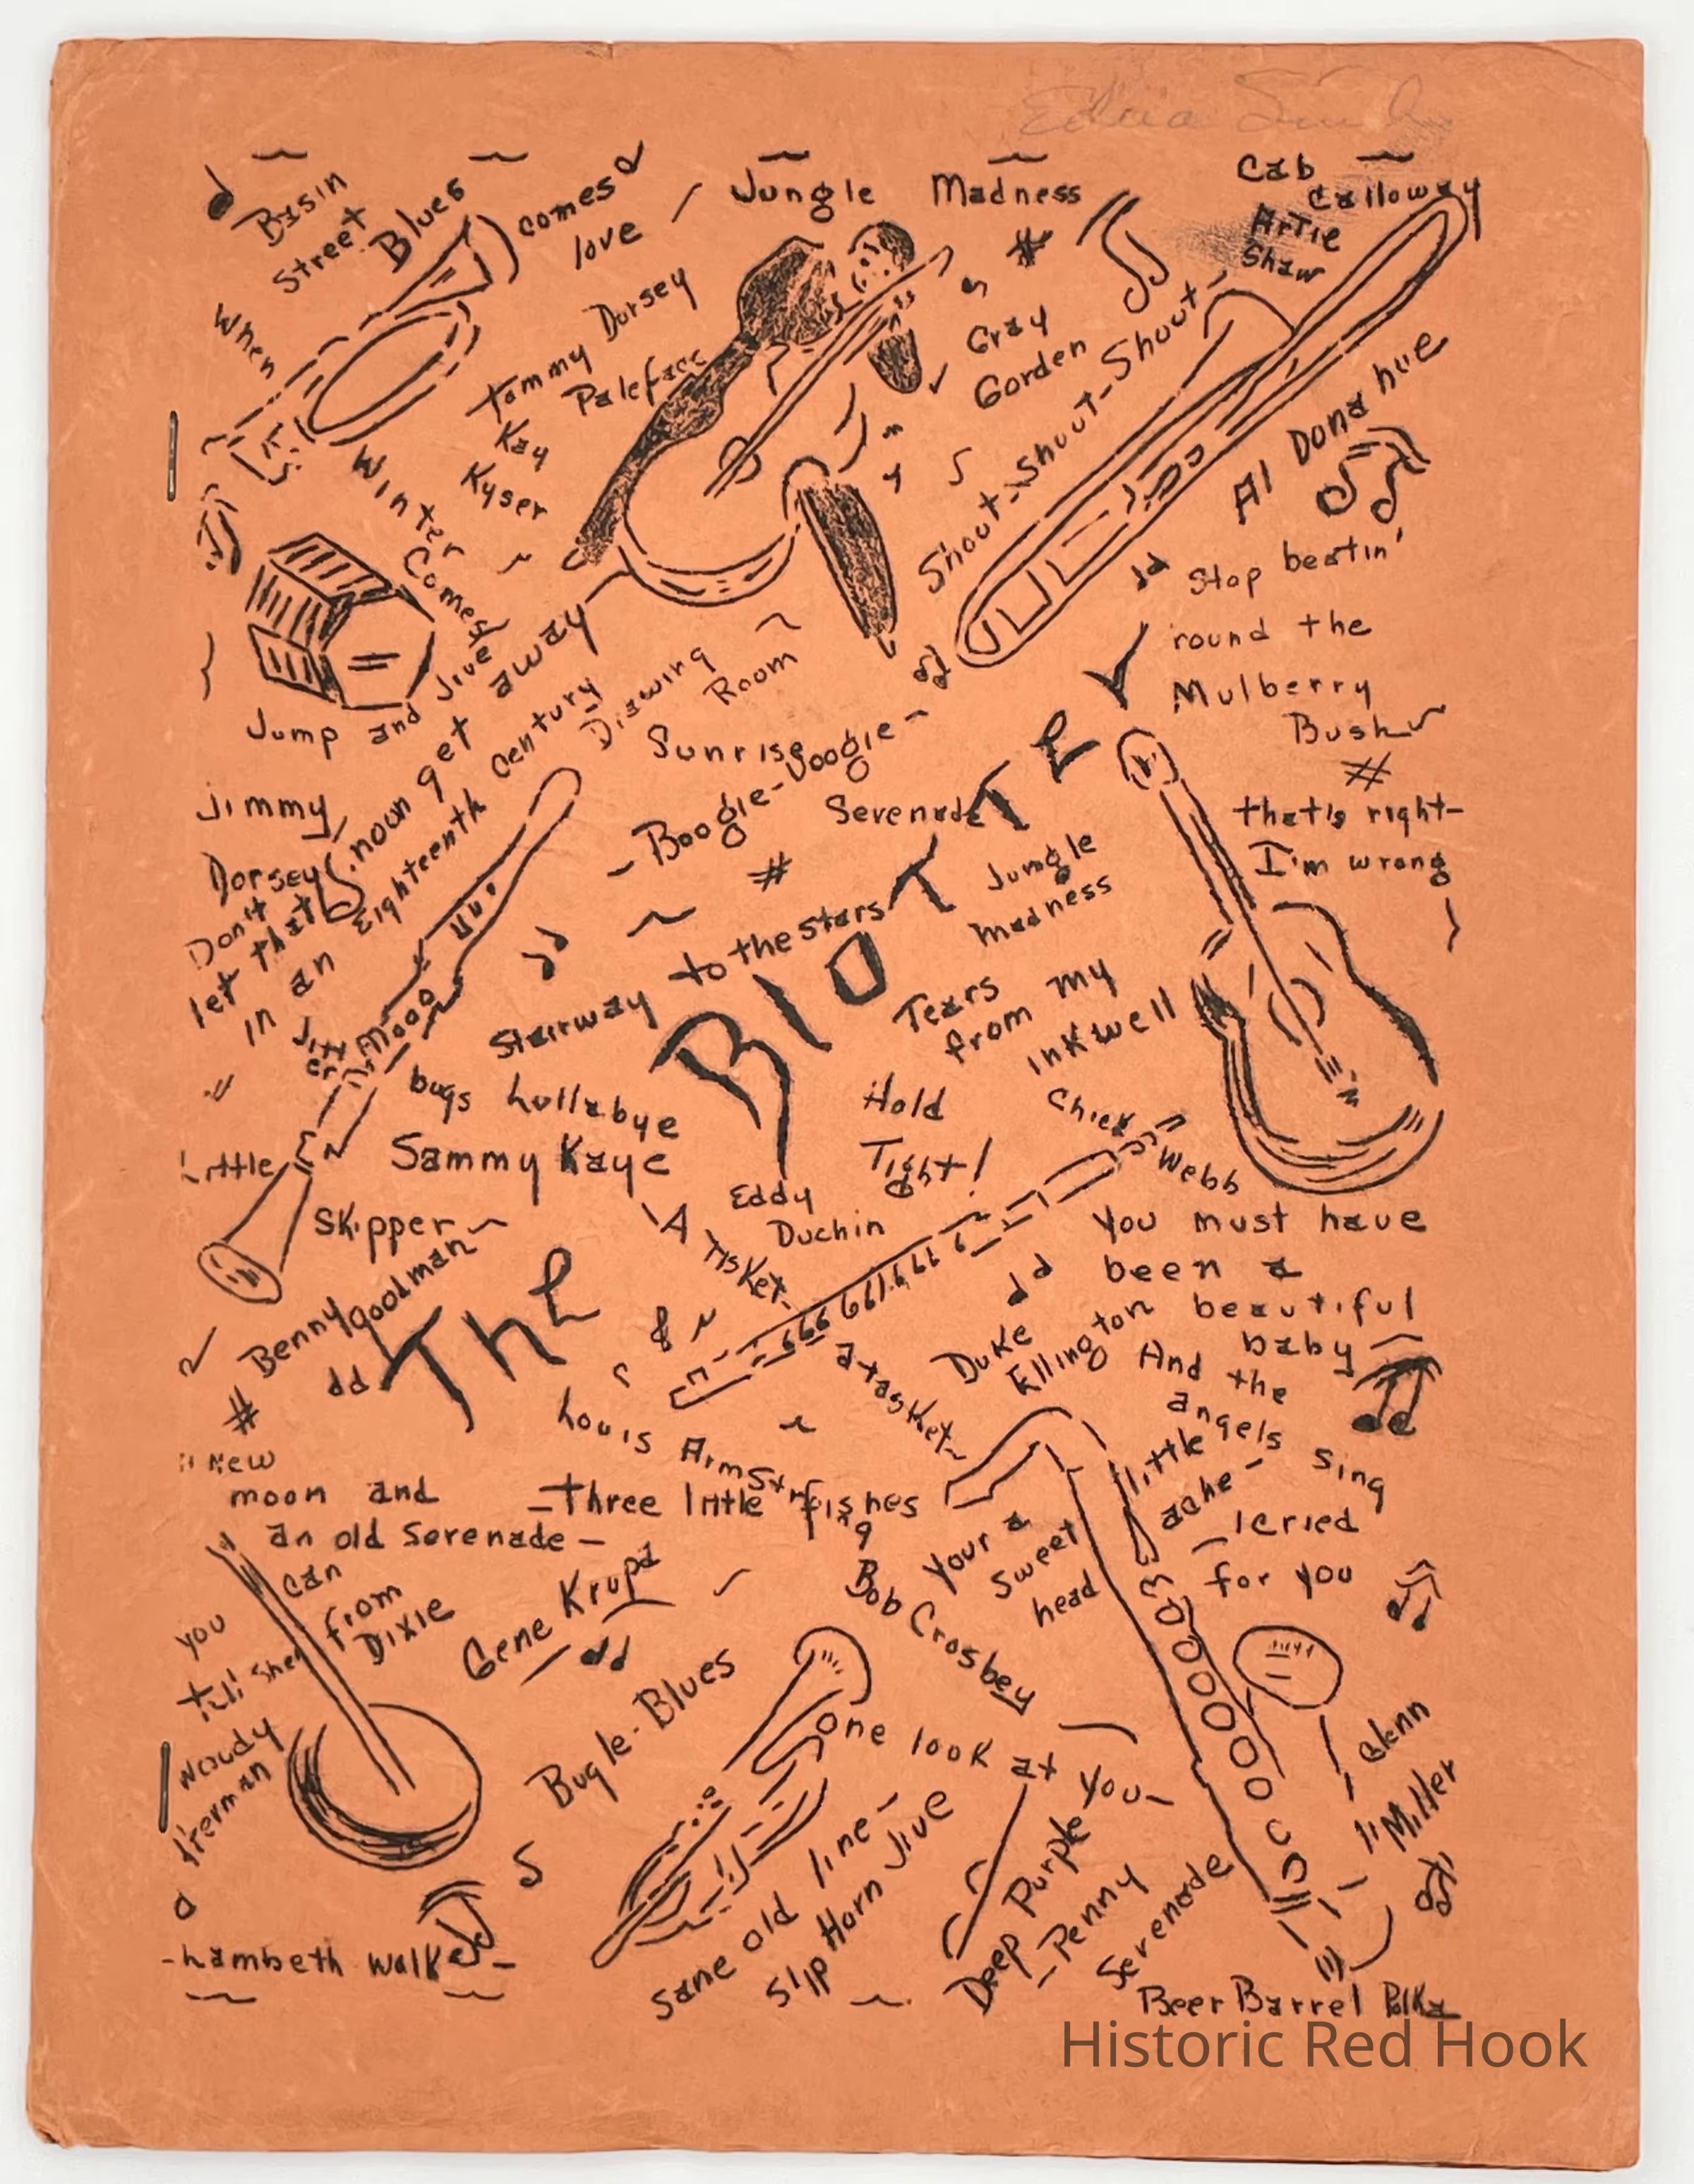 Basin
Street
Blues
comes
love
Jungle Madness
Cab
Calloway
Artie
Shaw
When
Winter
Comes
Tommy Dorsey
Paleface
Kay
Kyser
Gray
Gordon
Shout-Shout-Shout-Shout-
Al Donahue
Stop beatin'
'round the
Mulberry
Bush
#
that's right-
I'm wrong
Jump and Jive
Jimmy
Dorsey
Don't
let that
moon get away
in an Eighteenth Century
Drawing
Room
Sunrise
Serenade
-Boogie-Woogie-
#
Stairway to the stars
Jungle
Madness
Tears
from my
inkwell
The BIOTTER
Jitt
er
bugs lullabye
Moon
Sammy Kaye
Hold
Tight!
Chick
Webb
Little
Skipper
Benny goodman
#
Eddy
Duchin
A Tisket-
a tasket
You must have
been a
beautiful
baby
Duke
Ellington
And the
angels sing
Louis Armstrong
"New
moon and
an old Serenade-
-Three little fishes
little
ache-
I cried
for you
Your a
Sweet
head
you
can
tell she's
from
Dixie
Gene Krupa
Bob Crosbey
Woody
Herman
Bugle-Blues
One look at You-
Glenn
Miller
-Lambeth walk-
Sane old line-
Slip Horn Jive
Deep Purple
-Penny
Serenade
Beer Barrel Polka
Historic Red Hook